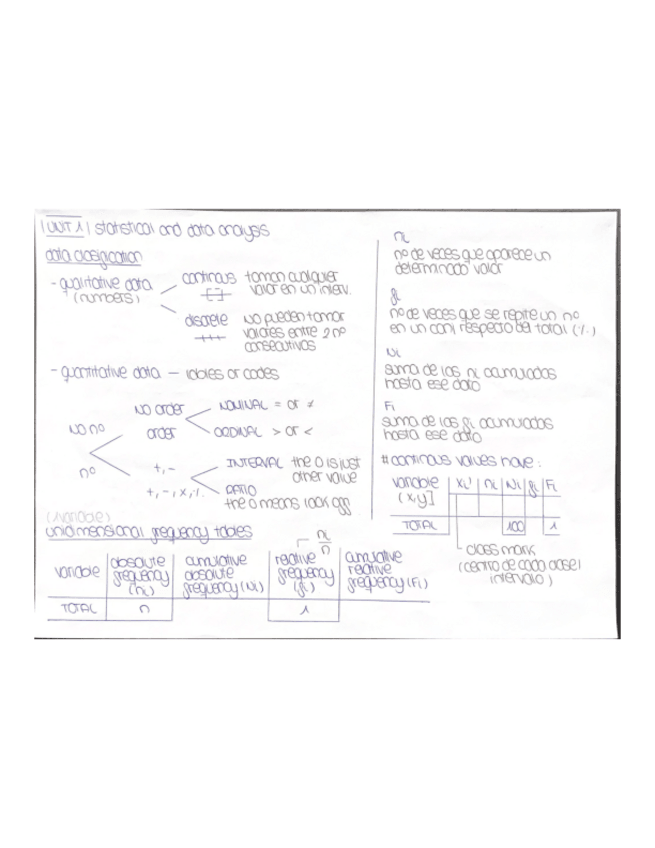 UNIT 1 statistical and data analysis
data clasification
- qualitative data (numbers)
continous toman cualquier valor en un interv.
discrete No pueden tomar valores entre 2 nº consecutivos
- quantitative data — lables or codes
NO nº
No order
NOMINAL = or ≠
order
ORDINAL > or <
nº
+, -
INTERVAL the 0 is just other value
+, -, x, /.
RATIO
the 0 means
(variable)
unidimensional frequency tables
ni/n
variable
absolute frequency (ni)
cumulative absolute frequency (Ni)
relative frequency (fi)
cumulative relative frequency (Fi)
TOTAL n 1
ni
nº de veces que aparece un
determinado valor
fi
nº de veces que se repite un nº
en un conj respecto del total (%)
Ni
suma de las ni acumuladas
hasta ese dato
Fi
suma de las fi acumuladas
hasta ese dato
# continous values have:
variable (x,y] xi' ni Ni fi Fi
TOTAL 100 1
class mark
(centro de cada clase/
intervalo)